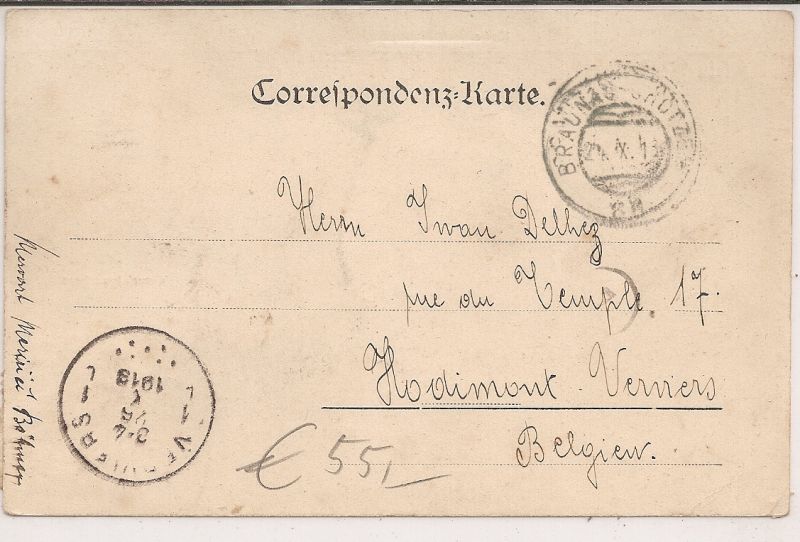 Correspondenz-Karte.
BRAUNAU
X. 1
2B
Herrn Iwan Delhez
rue du Temple 17.
Hodimont-Verviers
Belgien.
€ 55,—
1 VERVIERS 1
3-4
26
X
1913